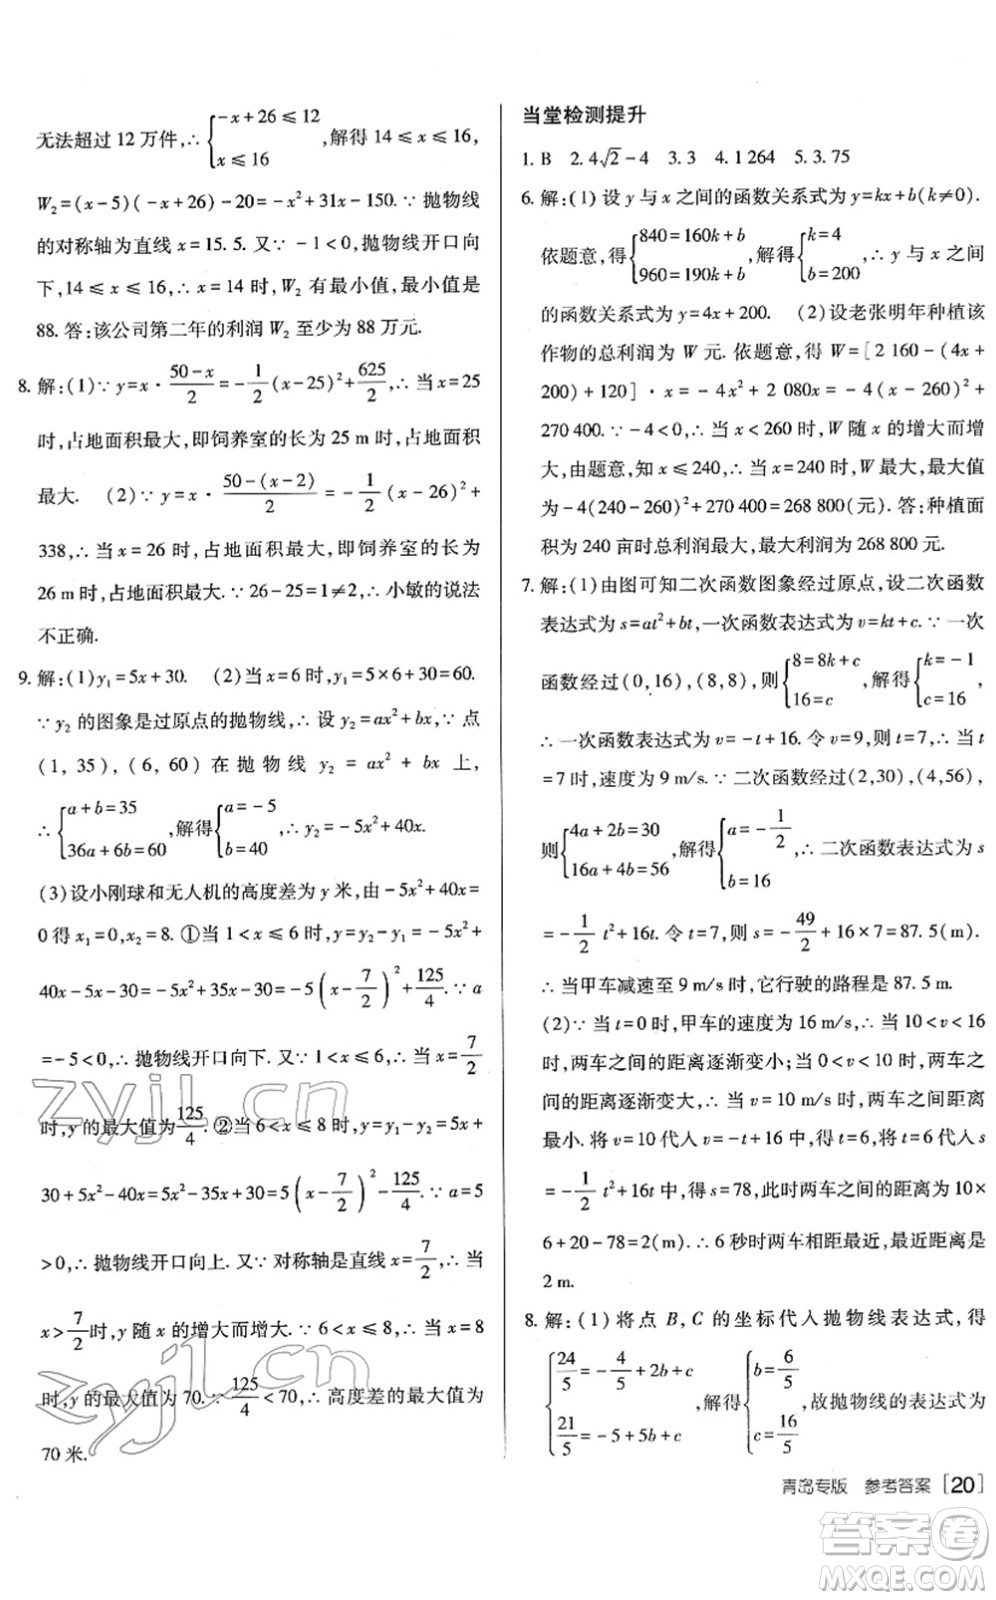 无法超过 12 万件,∴{-x+26≤12
x≤16 ,解得 14≤x≤16,
W₂=(x-5)(-x+26)-20=-x²+31x-150.∵抛物线
的对称轴为直线 x=15.5. 又∵-1<0,抛物线开口向
下,14≤x≤16,∴x=14 时,W₂ 有最小值,最小值是
88. 答:该公司第二年的利润 W₂ 至少为 88 万元.
8. 解:(1)∵y=x·(50-x)/2=-1/2(x-25)²+625/2,∴当 x=25
时,占地面积最大,即饲养室的长为 25 m 时,占地面积
最大. (2)∵y=x·(50-(x-2))/2=-1/2(x-26)²+
338,∴当 x=26 时,占地面积最大,即饲养室的长为
26 m 时,占地面积最大.∵26-25=1≠2,∴小敏的说法
不正确.
9. 解:(1)y₁=5x+30. (2)当 x=6 时,y₁=5×6+30=60.
∵y₂ 的图象是过原点的抛物线,∴设 y₂=ax²+bx,∵点
(1,35),(6,60)在抛物线 y₂=ax²+bx 上,
∴{a+b=35
36a+6b=60 ,解得{a=-5
b=40 ,∴y₂=-5x²+40x.
(3)设小刚球和无人机的高度差为 y 米,由-5x²+40x=
0 得 x₁=0,x₂=8. ①当 1<x≤6 时,y=y₂-y₁=-5x²+
40x-5x-30=-5x²+35x-30=-5(x-7/2)²+125/4.∵a
=-5<0,∴抛物线开口向下. 又∵1<x≤6,∴当 x=7/2
时,y 的最大值为125/4. ②当 6<x≤8 时,y=y₁-y₂=5x+
30+5x²-40x=5x²-35x+30=5(x-7/2)²-125/4.∵a=5
>0,∴抛物线开口向上. 又∵对称轴是直线 x=7/2,∴当
x>7/2时,y 随 x 的增大而增大.∵6<x≤8,∴当 x=8
时,y 的最大值为 70.∵125/4<70,∴高度差的最大值为
70 米.
当堂检测提升
1. B 2. 4√2-4 3. 3 4. 1 264 5. 3. 75
6. 解:(1)设 y 与 x 之间的函数关系式为 y=kx+b(k≠0).
依题意,得{840=160k+b
960=190k+b ,解得{k=4
b=200 ,∴y 与 x 之间
的函数关系式为 y=4x+200. (2)设老张明年种植该
作物的总利润为 W 元. 依题意,得 W=[2 160-(4x+
200)+120]·x=-4x²+2 080x=-4(x-260)²+
270 400.∵-4<0,∴当 x<260 时,W 随 x 的增大而增
大,由题意,知 x≤240,∴当 x=240 时,W 最大,最大值
为-4(240-260)²+270 400=268 800(元). 答:种植面
积为 240 亩时总利润最大,最大利润为 268 800 元.
7. 解:(1)由图可知二次函数图象经过原点,设二次函数
表达式为 s=at²+bt,一次函数表达式为 v=kt+c.∵一次
函数经过(0,16),(8,8),则{8=8k+c
16=c ,解得{k=-1
c=16
∴一次函数表达式为 v=-t+16. 令 v=9,则 t=7,∴当 t=
7 时,速度为 9 m/s.∵二次函数经过(2,30),(4,56),
则{4a+2b=30
16a+4b=56 ,解得{a=-1/2
b=16 ,∴二次函数表达式为 s
=-1/2t²+16t. 令 t=7,则 s=-49/2+16×7=87. 5(m).
∴当甲车减速至 9 m/s 时,它行驶的路程是 87. 5 m.
(2)∵当 t=0 时,甲车的速度为 16 m/s,∴当 10<v<16
时,两车之间的距离逐渐变小;当 0<v<10 时,两车之
间的距离逐渐变大,∴当 v=10 m/s 时,两车之间距离
最小. 将 v=10 代入 v=-t+16 中,得 t=6. 将 t=6 代入 s
=-1/2t²+16t 中,得 s=78,此时两车之间的距离为 10×
6+20-78=2(m).∴6 秒时两车相距最近,最近距离是
2 m.
8. 解:(1)将点 B,C 的坐标代入抛物线表达式,得
{24/5=-4/5+2b+c
21/5=-5+5b+c ,解得{b=6/5
c=16/5 ,故抛物线的表达式为
青岛专版 参考答案 [20]
zyjl.cn
zyjl.cn
答案卷
MXQE.COM